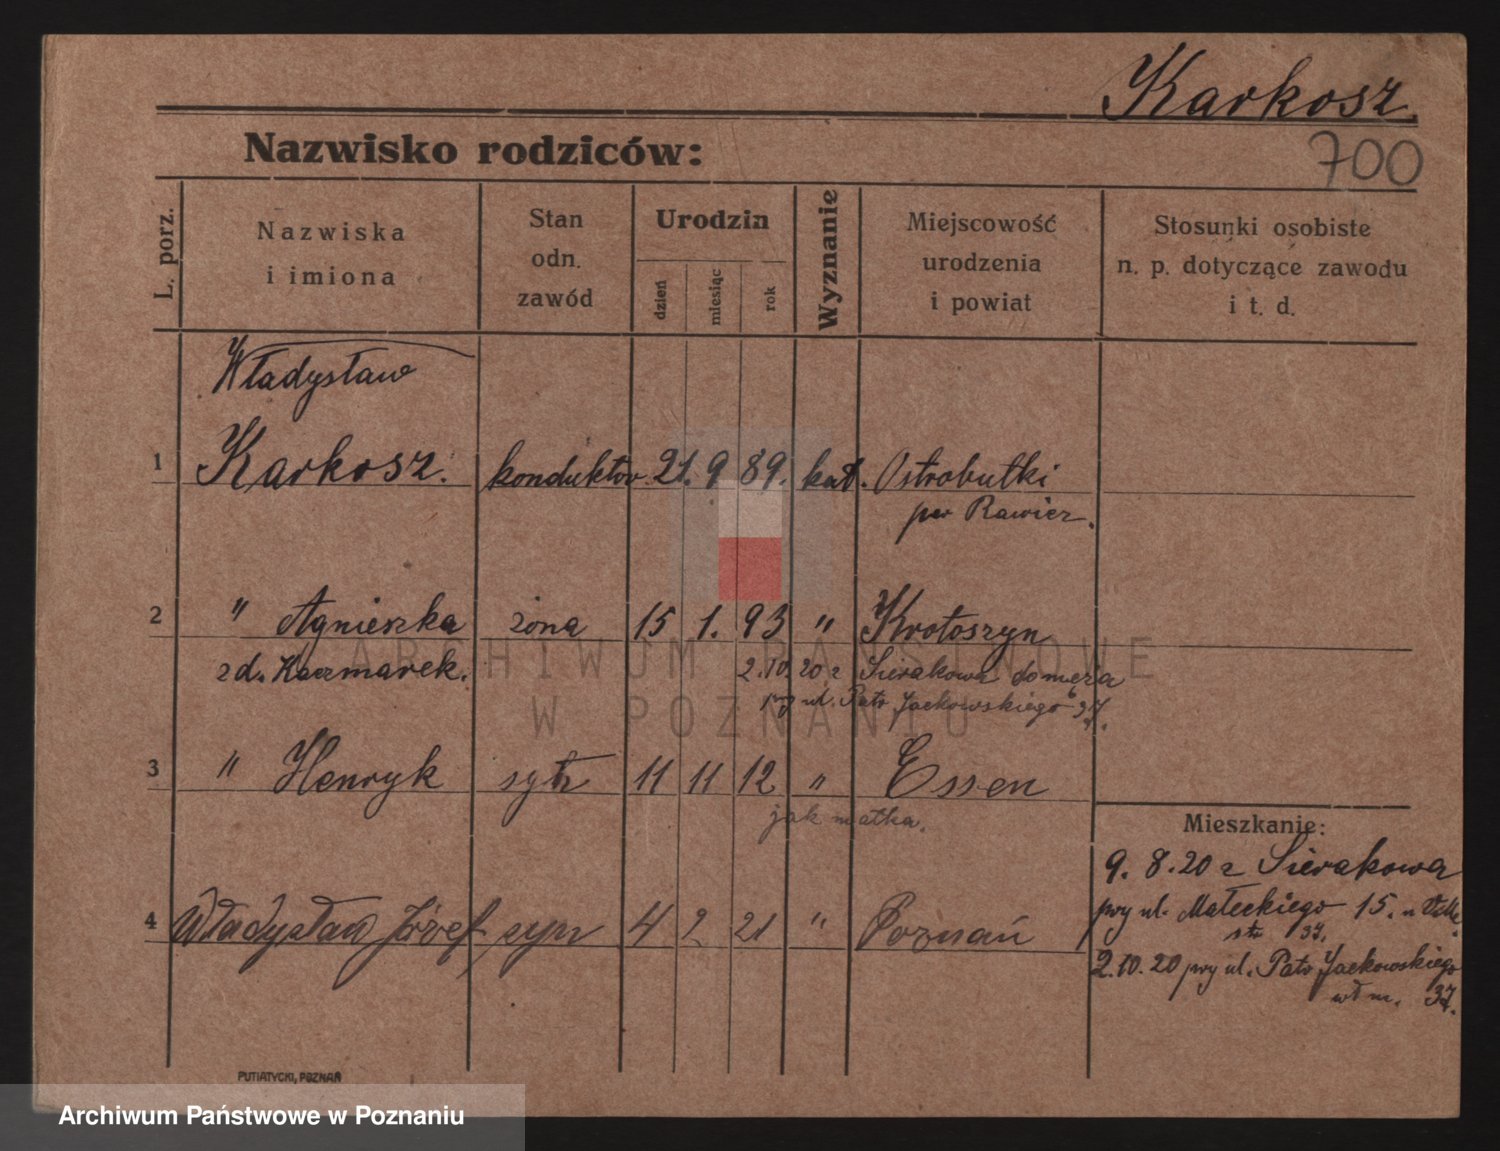 Karkosz.
700
Nazwisko rodziców:
L. porz.
Nazwiska
i imiona
Stan
odn.
zawód
Urodzin
dzień
miesiąc
rok
Wyznanie
Miejscowość
urodzenia
i powiat
Stosunki osobiste
n. p. dotyczące zawodu
i t. d.
Władysław
1 Karkosz. konduktor 21. 9 89. kat. Ostrobutki
pow Rawicz.
2 " Agnieszka żona 15 1. 93 " Krotoszyn
zd. Kaczmarek. 2.10.20 z Sierakowa do męża
przy ul. Patr Jackowskiego 37.
3 " Henryk syn 11 11 12 " Essen
jak matka.
Mieszkanie:
9. 8. 20 z Sierakowa
przy ul. Małeckiego 15. u
37.
2.10.20 przy ul. Patr Jackowskiego
wł m. 37.
4 Władysław Józef syn 4 2 21 " Poznań
PUTIATYCKI, POZNAŃ
ARCHIWUM PAŃSTWOWE
W POZNANIU
Archiwum Państwowe w Poznaniu